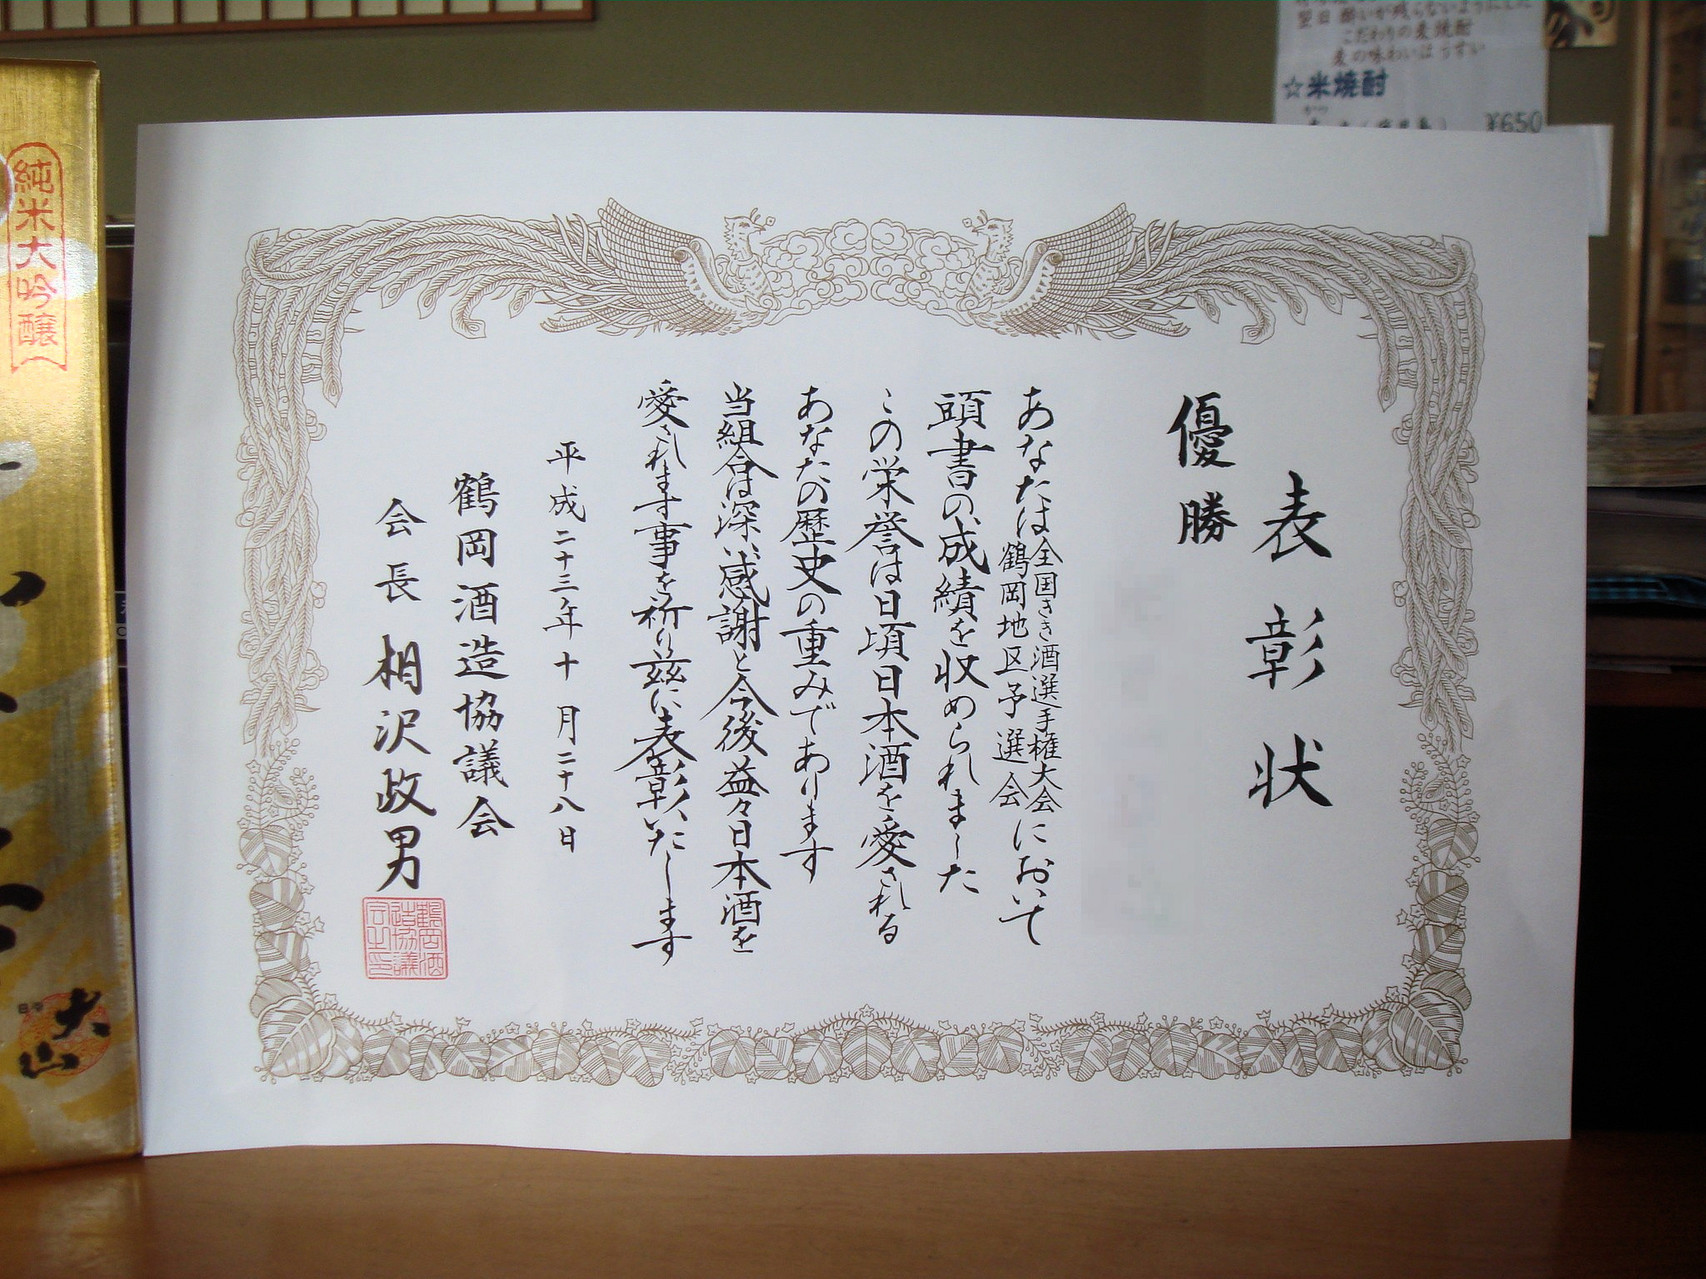 表彰状
優勝
あなたは全国きき酒選手権大会
鶴岡地区予選会において
頭書の成績を収められました
この栄誉は日頃日本酒を愛される
あなたの歴史の重みであります
当組合は深い感謝と今後益々日本酒を
愛されます事を祈り茲に表彰いたします
平成二十三年十月二十八日
鶴岡酒造協議会
会長 相沢政男
鶴岡酒造協議会之印
純米大吟醸
大山
翌日酔いが残らないようにした
こだわりの麦焼酎
麦の味わいはうすい
☆米焼酎
¥650